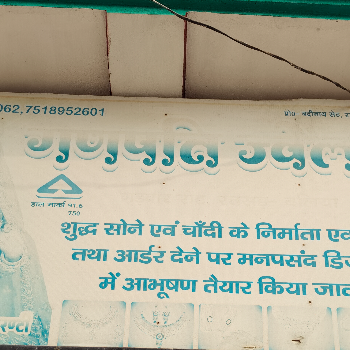 062,7518952601
गणपति ज्वेल
हॉल मार्का
750
शुद्ध सोने एवं चाँदी के निर्माता एव
तथा आर्डर देने पर मनपसंद डि
में आभूषण तैयार किया जा